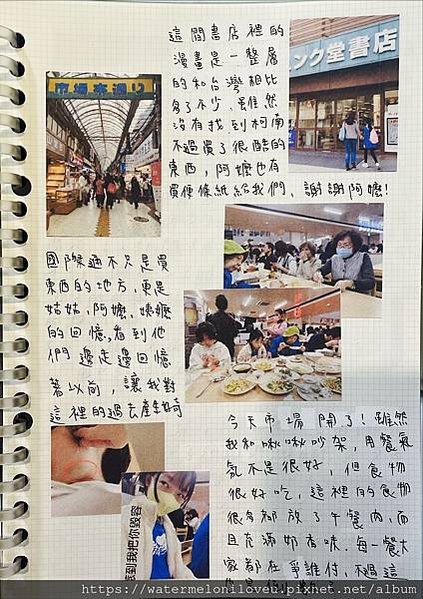 這間書店裡的
漫畫是一整層
的和台灣相比
多了不少,雖然
沒有找到柯南
不過買了很酷的
東西,阿嬤也有
買便條紙給我們,謝謝阿嬤!
ンク堂書店
市場本通り
國際通不只是買
東西的地方,更是
姑姑,阿嬤,姨嬤
的回憶,看到他
們邊走邊回憶
著以前,讓我對
這裡的過去產生好奇
今天市場開了!雖然
我和啾啾吵架,用餐氣
氛不是很好,但食物
很好吃,這裡的食物
很多都放了午餐肉,而
且充滿奶香味.每一餐大
家都在爭誰付,不過這
感到我把你毀容
https://watermeloniloveu.pixnet.net/album